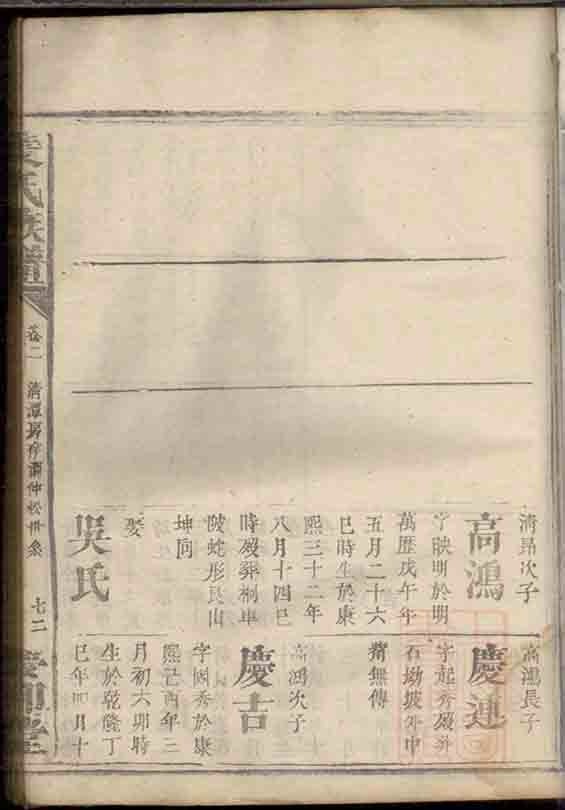 清昂次子
高鴻
字映明於明
萬歷戊午年
五月二十六
巳時生於康
熙三十二年
八月十四巳
時殁葬桐車
陂蛇形艮山
坤向
娶
吳氏
高鴻長子
慶連
字起秀殁葬
石坳坡外中
無傳
高鴻次子
慶吉
字國秀於康
熙己酉年三
月初六卯時
生於乾隆丁
巳年四月十
氏族譜
卷二
清潭房 仲松世系
七二